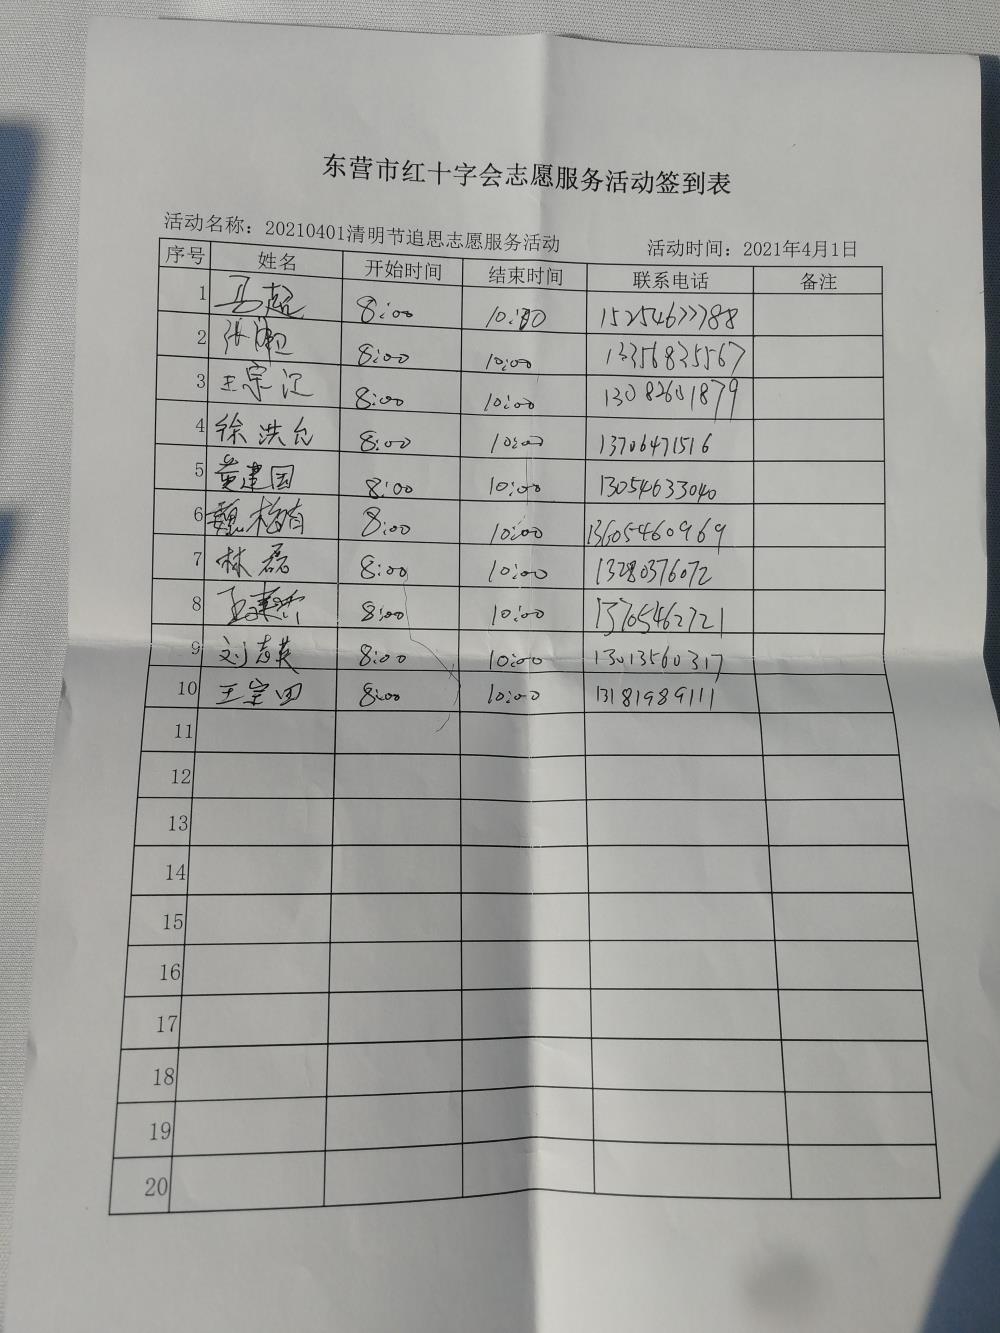 东营市红十字会志愿服务活动签到表
活动名称：20210401清明节追思志愿服务活动 活动时间：2021年4月1日
序号 姓名 开始时间 结束时间 联系电话 备注
1 马超 8:00 10:00 15254677788
2 8:00 10:00 13356835567
3 王宗江 8:00 10:00 13082601879
4 徐洪允 8:00 10:00 13706471516
5 黄建国 8:00 10:00 13054633040
6 魏梅有 8:00 10:00 13605460969
7 林磊 8:00 10:00 13280376072
8 8:00 10:00 13705462721
9 刘志英 8:00 10:00 13013560317
10 王宝田 8:00 10:00 13181989111
11
12
13
14
15
16
17
18
19
20